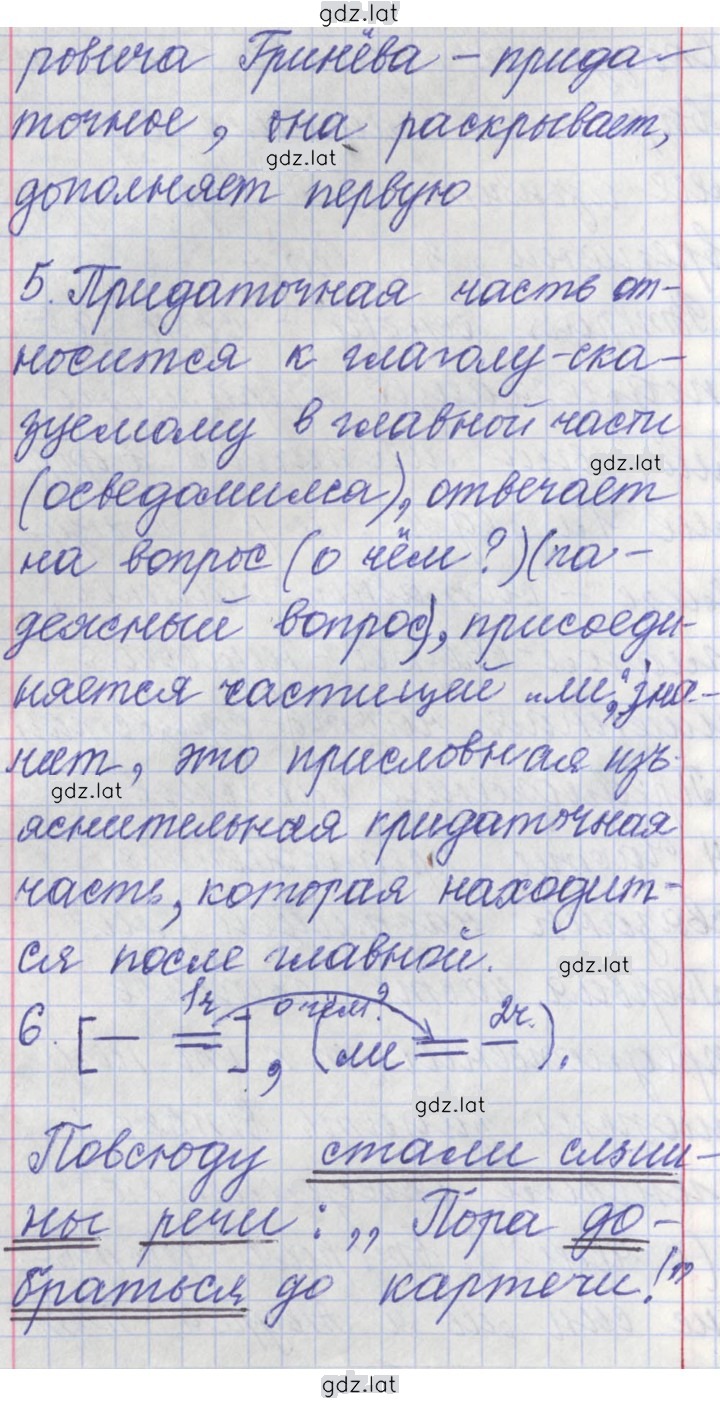 gdz.lat
ровича Гринёва – прида-
точное, она раскрывает,
gdz.lat
дополняет первую
5. Придаточная часть от-
носится к глаголу-ска-
зуемому в главной части
gdz.lat
(осведомился), отвечает
на вопрос (о чём?) (па-
дежный вопрос), присоеди-
няется частицей „ли”, зна-
чит, это присловная изъ-
gdz.lat
яснительная придаточная
часть, которая находит-
ся после главной.
gdz.lat
1ч. о чём? 2ч.
6. [— =], (ли = —).
gdz.lat
Повсюду стали слыш-
ны речи: „Пора до-
браться до картечи!”
gdz.lat